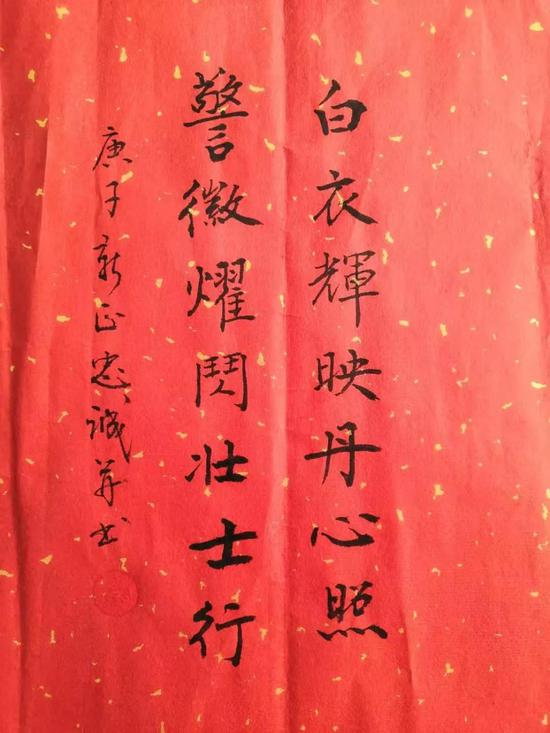 白衣輝映丹心照
警徽燿閃壮士行
庚子新正忠誠并书